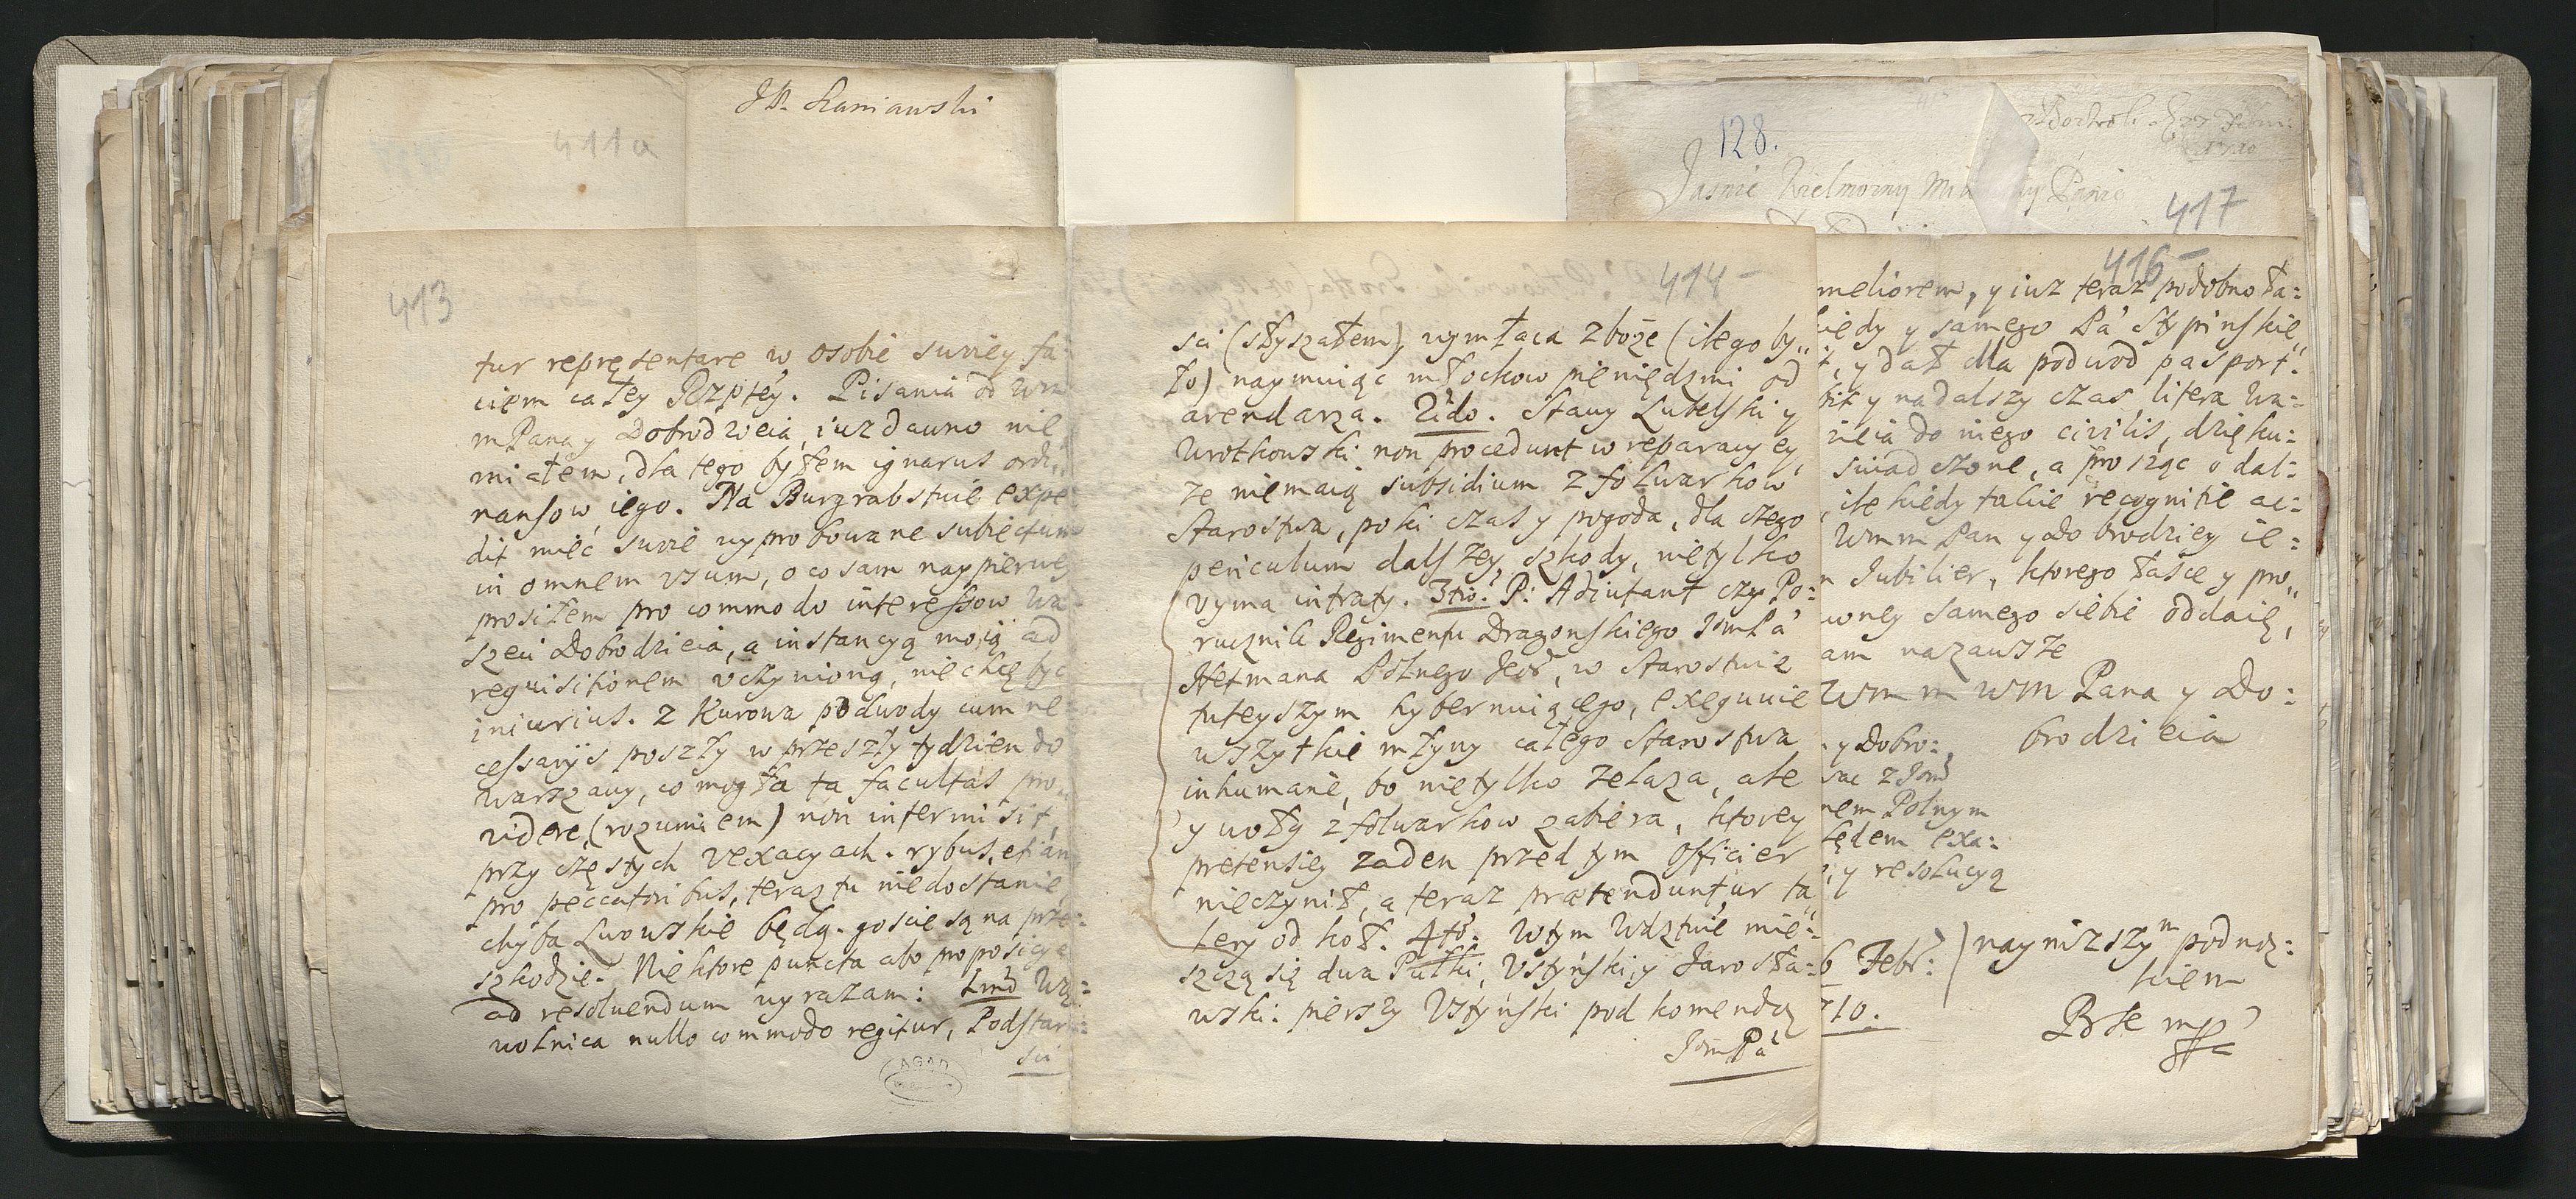 411a
413
tur repręsentare w osobie swiey fa
ciem całey Rzptey. Pisania od Wm
mPana y Dobrodzieia iuz dawno nie
miałem, dla tego byłem ignarus ordi
nansow iego. Na Burgrabstwie expe
dit mieć swie wyprobowane subiectum
in omnem usum, o co sam naypierwey
prosiłem pro commodo interessow Wa
szeci Dobrodzieia, a instancyą moią ad
requisitionem uczynioną, nie chcę być
iniurius. Z Kurowa podwody cum ne
cessarijs poszły w przeszły tydzien do
Warszawy, co mogła ta facultas pro
videre, (rozumiem) non intermisit,
przy częstych vexacyach. rybus, etian
pro peccatoribus, teraz tu niedostanie,
chyba Lwowskie będą. goscie są na prze:
szkodzie. Niektore puncta abo proposicye
ad resolvendum wyrazam: Imo Wą:
wolnica nullo commodo regitur, Podstar:
sci
AGAD
414
sci (słyszałem) wymłaca zboże (ilego by„
ło) naymuiąc młockow pieniędzmi od
arendarza. 2do. Stawy Lubelski y
Wrotkowski non procedunt w reparacyey,
ze niemaią subsidium z folwarkow
Starostwa, poki czas y pogoda, dla czego
periculum dalszey szkody, nietylko
uyma intraty. 3tio. P: Adiutant czy Po:
rucznik Regimentu Dragonskiego JmPa
Hetmana Polnego Kor, w Starostwie
tuteyszym hybernuiącego, exequuie
wszytkie młyny całego Starostwa
inhumanè, bo nietylko zelaza, ale
y woły z folwarkow zabiera, ktorey
pretensiey zaden przed tym Officier
nieczynił, a teraz prætenduntur ta„
lery od koł. 4to. W tym Wdztwie mie:
szczą się dwa Pułki, Ustyński, y Jarosła:
wski: pierszy Ustyński pod komendą
JmPa
128.
Jasnie Wielmozny
417
416
meliorem, y iuz teraz podobno ła:
kiedy y samego Pa Stypinskie„
y dał dla podwod pasport.
y nadalszy czas litera Wa:
zieia do niego civilis, dzięku:
swiadczone, a prosząc o dal:
ile kiedy takie recognitie ac:
Wmm Pan y Dobrodziey ie:
Jubilier, ktorego łasce y pro„
wney samego siebie oddaię,
am nazawsze
Wm m WM Pana y Do:
brodzieia
y Dobro:
z Jm
nem Polnym
lędem exa:
y resolucyą
6 Febr:
710.
naynizszym podnoz:
kiem